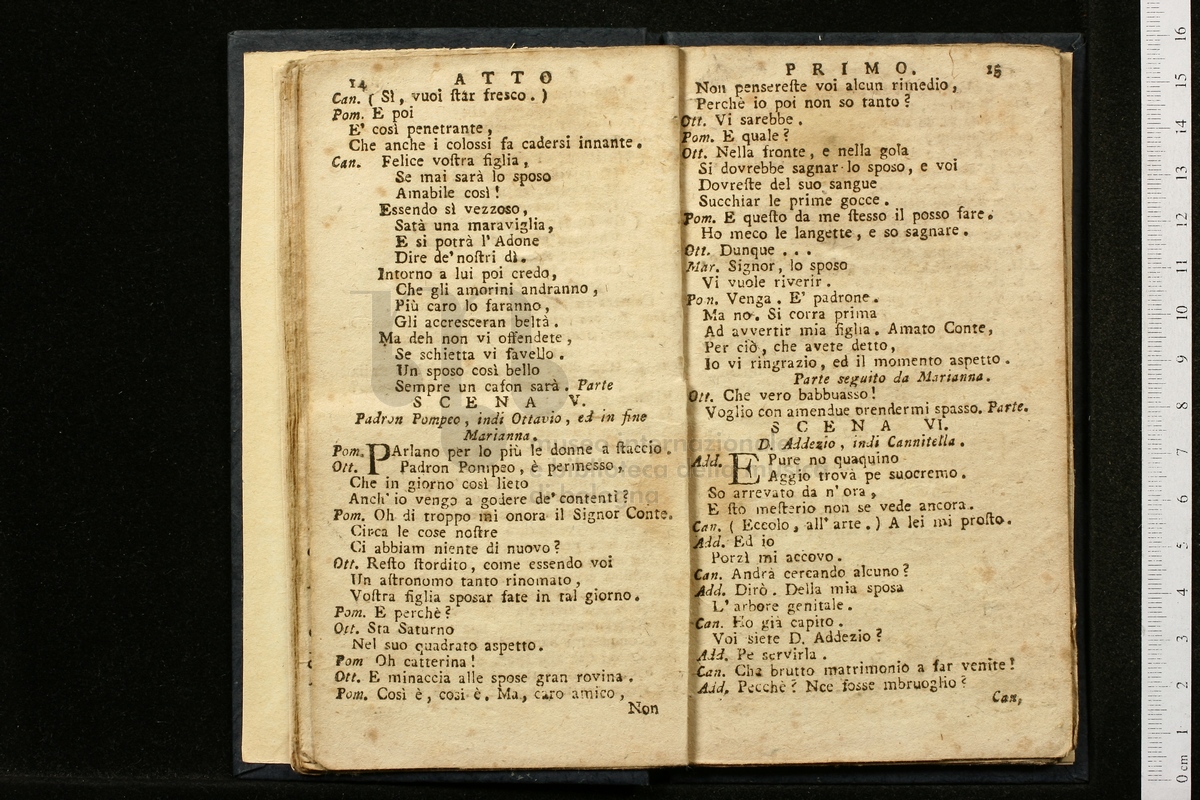 14 ATTO
Can. ( Sì, vuoi ſtar freſco. )
Pom. E poi
E' così penetrante,
Che anche i coloſſi fa caderſi innante.
Can. Felice voſtra figlia,
Se mai ſarà lo ſpoſo
Amabile così!
Eſſendo sì vezzoso,
Satà una maraviglia,
E si potrà l'Adone
Dire de' noſtri dì.
Intorno a lui poi credo,
Che gli amorini andranno,
Più caro lo faranno,
Gli accreſceran beltà.
Ma deh non vi offendete,
Se ſchietta vi favello.
Un ſpoſo così bello
Sempre un cafon sarà. Parte
SCENA V.
Padron Pompeo, indi Ottavio, ed in fine
Marianna.
Pom. PArlano per lo più le donne a ſtaccio.
Ott. Padron Pompeo, è permeſſo,
Che in giorno così lieto
Anch' io venga a godere de' contenti?
Pom. Oh di troppo mi onora il Signor Conte.
Circa le coſe noſtre
Ci abbiam niente di nuovo?
Ott. Reſto ſtordito, come eſſendo voi
Un aſtronomo tanto rinomato,
Voſtra figlia ſposar fate in tal giorno.
Pom. E perchè?
Ott. Sta Saturno
Nel ſuo quadrato aſpetto.
Pom Oh catterina!
Ott. E minaccia alle ſpose gran rovina.
Pom. Così è, così è. Ma, caro amico,
Non
PRIMO. 15
Non penſereſte voi alcun rimedio,
Perchè io poi non so tanto?
Ott. Vi sarebbe.
Pom. E quale?
Ott. Nella fronte, e nella gola
Si dovrebbe sagnar lo ſpoſo, e voi
Dovreſte del ſuo ſangue
Succhiar le prime gocce.
Pom. E queſto da me ſteſſo il poſſo fare.
Ho meco le langette, e so ſagnare.
Ott. Dunque . . .
Mar. Signor, lo ſpoſo
Vi vuole riverir.
Pon. Venga. E' padrone.
Ma no. Si corra prima
Ad avvertir mia figlia. Amato Conte,
Per ciò, che avete detto,
Io vi ringrazio, ed il momento aſpetto.
Parte ſeguito da Marianna.
Ott. Che vero babbuaſſo!
Voglio con amendue prendermi ſpaſſo. Parte.
SCENA VI.
D. Addezio, indi Cannitella.
Add. E Pure no quaquino
Aggio trovà pe suocremo.
So arrevato da n' ora,
E ſto meſterio non ſe vede ancora.
Can. ( Eccolo, all' arte. ) A lei mi proſto.
Add. Ed io
Porzì mi accovo.
Can. Andrà cercando alcuno?
Add. Dirò. Della mia sposa
L' arbore genitale.
Can. Ho già capito.
Voi siete D. Addezio?
Add. Pe ſervirla.
Can. Che brutto matrimonio a far venite!
Add. Pecchè? Nce foſſe mbruoglio?
Can,
museo internazionale
e biblioteca della musica
di bologna
0 cm 1 2 3 4 5 6 7 8 9 10 11 12 13 14 15 16